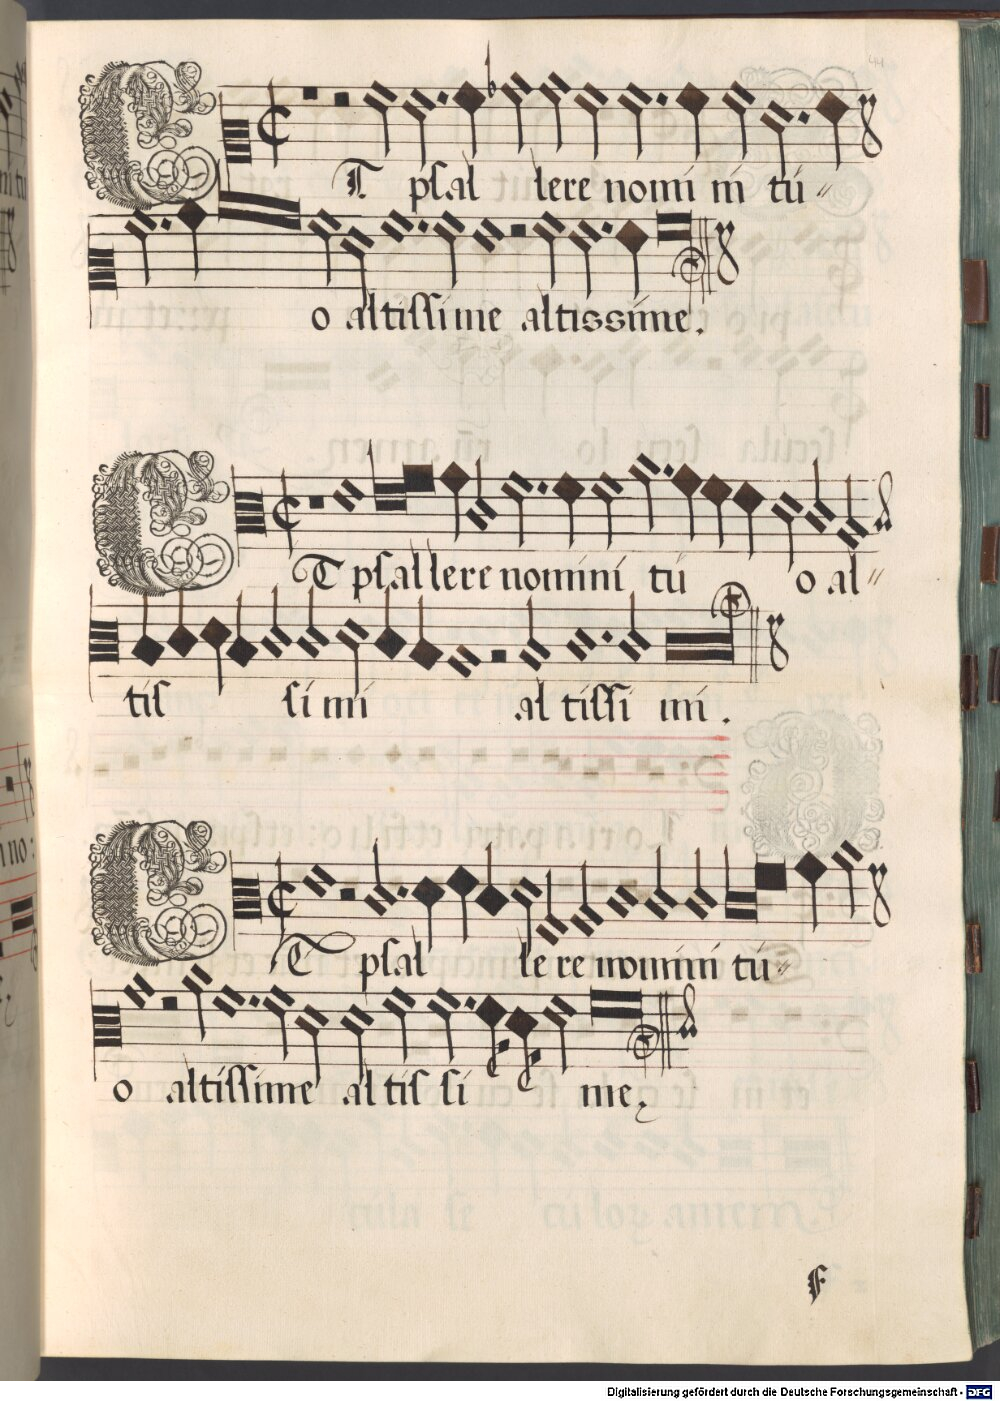 44
ET psal lere nomi ni tu
o altissime altissime.
ET psallere nomini tu o al
tis si mi altissi mi.
ET psal lere nomini tu
o altissime altissi me.
F
Digitalisierung gefördert durch die Deutsche Forschungsgemeinschaft - DFG